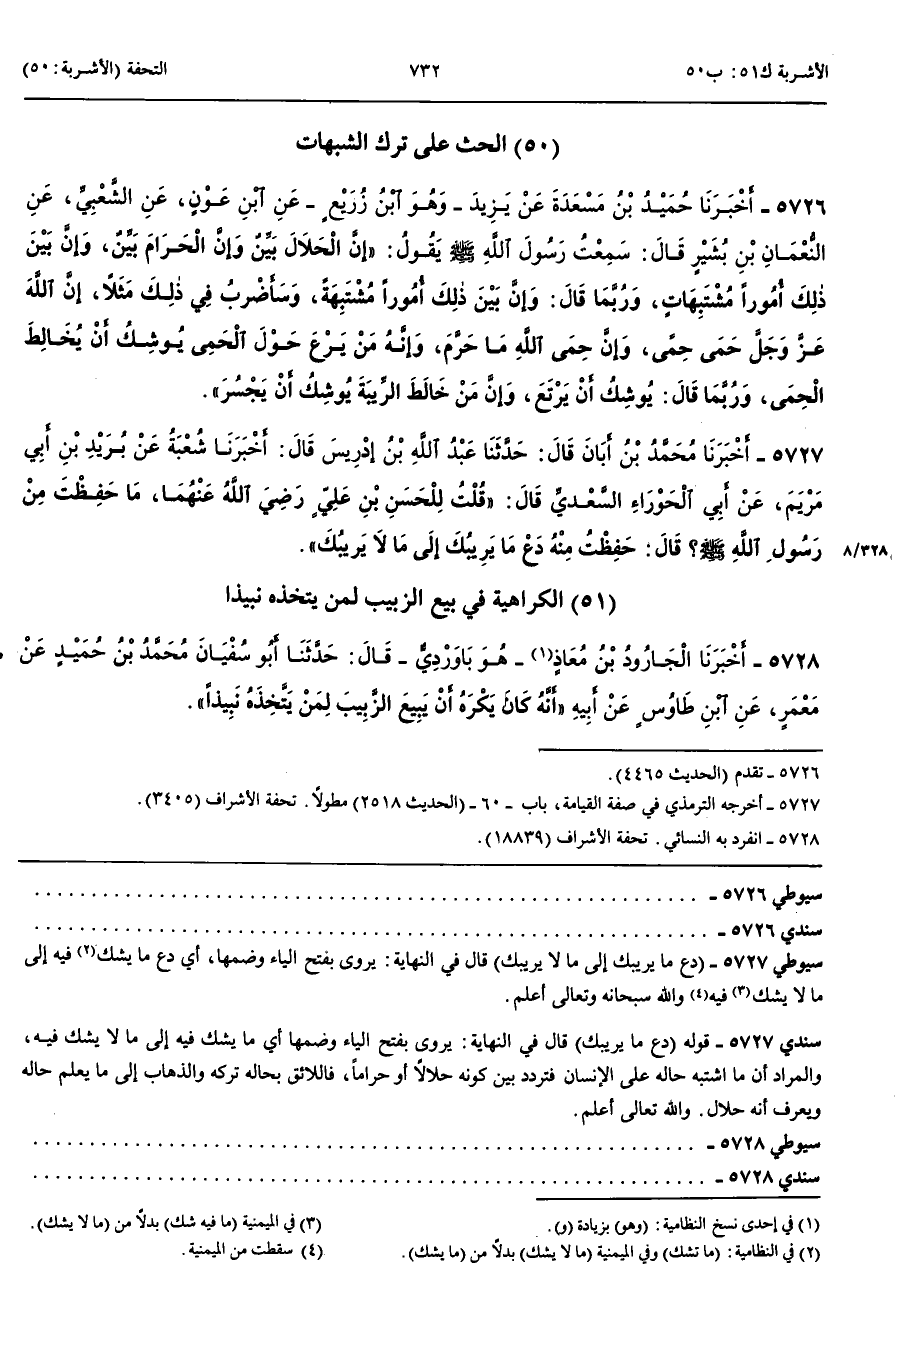 الأشربة ك٥١: ب٥٠ ٧٣٢ التحفة (الأشربة: ٥٠)
(٥٠) الحث على ترك الشبهات
٥٧٢٦ ـ أَخْبَرَنَا حُمَيْدُ بْنُ مَسْعَدَةَ عَنْ يَزِيدَ ـ وَهُوَ ٱبْنُ زُرَيْعٍ ـ عَنِ ٱبْنِ عَوْنٍ، عَنِ الشَّعْبِيِّ، عَنِ
النُّعْمَانِ بْنِ بُشَيْرٍ قَالَ: سَمِعْتُ رَسُولَ ٱللَّهِ ﷺ يَقُولُ: «إنَّ الْحَلَالَ بَيِّنٌ وَإنَّ الْحَرَامَ بَيِّنٌ، وَإنَّ بَيْنَ
ذٰلِكَ أُمُوراً مُشْتَبِهَاتٍ، وَرُبَّمَا قَالَ: وَإنَّ بَيْنَ ذٰلِكَ أُمُوراً مُشْتَبِهَةً، وَسَأَضْرِبُ فِي ذٰلِكَ مَثَلًا، إنَّ ٱللَّهَ
عَزَّ وَجَلَّ حَمَى حِمًى، وَإنَّ حِمَى ٱللَّهِ مَا حَرَّمَ، وَإنَّهُ مَنْ يَرْعَ حَوْلَ الْحِمَى يُوشِكُ أَنْ يُخَالِطَ
الْحِمَى، وَرُبَّمَا قَالَ: يُوشِكُ أَنْ يَرْتَعَ، وَإنَّ مَنْ خَالَطَ الرِّيبَةَ يُوشِكُ أَنْ يَجْسُرَ».
٥٧٢٧ ـ أَخْبَرَنَا مُحَمَّدُ بْنُ أَبَانَ قَالَ: حَدَّثَنَا عَبْدُ اللَّهِ بْنُ إدْرِيسَ قَالَ: أَخْبَرَنَا شُعْبَةُ عَنْ بُرَيْدِ بْنِ أَبِي
مَرْيَمَ، عَنْ أَبِي ٱلْحَوْرَاءِ السَّعْدِيِّ قَالَ: «قُلْتُ لِلْحَسَنِ بْنِ عَلِيٍّ رَضِيَ ٱللَّهُ عَنْهُمَا، مَا حَفِظْتَ مِنْ
رَسُولِ ٱللَّهِ ﷺ؟ قَالَ: حَفِظْتُ مِنْهُ دَعْ مَا يَرِيبُكَ إلَى مَا لَا يَرِيبُكَ». ٨/٣٢٨
(٥١) الكراهية في بيع الزبيب لمن يتخذه نبيذا
٥٧٢٨ ـ أَخْبَرَنَا الْجَارُودُ بْنُ مُعَاذٍ(١) ـ هُوَ بَاوَرْدِيٌّ ـ قَالَ: حَدَّثَنَا أَبُو سُفْيَانَ مُحَمَّدُ بْنُ حُمَيْدٍ عَنْ
مَعْمَرٍ، عَنِ ٱبْنِ طَاوُسٍ عَنْ أَبِيهِ «أَنَّهُ كَانَ يَكْرَهُ أَنْ يَبِيعَ الزَّبِيبَ لِمَنْ يَتَّخِذَهُ نَبِيذاً».
٥٧٢٦ ـ تقدم (الحديث ٤٤٦٥).
٥٧٢٧ ـ أخرجه الترمذي في صفة القيامة، باب ـ ٦٠ ـ (الحديث ٢٥١٨) مطولاً. تحفة الأشراف (٣٤٠٥).
٥٧٢٨ ـ انفرد به النسائي. تحفة الأشراف (١٨٨٣٩).
سيوطي ٥٧٢٦ ـ . . . . . . . . . . . . . . . . . . . .
سندي ٥٧٢٦ ـ . . . . . . . . . . . . . . . . . . . .
سيوطي ٥٧٢٧ ـ (دع ما يريبك إلى ما لا يريبك) قال في النهاية: يروى بفتح الياء وضمها، أي دع ما يشك(٢) فيه إلى
ما لا يشك(٣) فيه(٤) والله سبحانه وتعالى أعلم.
سندي ٥٧٢٧ ـ قوله (دع ما يريبك) قال في النهاية: يروى بفتح الياء وضمها أي ما يشك فيه إلى ما لا يشك فيه،
والمراد أن ما اشتبه حاله على الإنسان فتردد بين كونه حلالاً أو حراماً، فاللائق بحاله تركه والذهاب إلى ما يعلم حاله
ويعرف أنه حلال. والله تعالى أعلم.
سيوطي ٥٧٢٨ ـ . . . . . . . . . . . . . . . . . . . .
سندي ٥٧٢٨ ـ . . . . . . . . . . . . . . . . . . . .
(١) في إحدى نسخ النظامية: (وهو) بزيادة (و). (٣) في الميمنية (ما فيه شك) بدلاً من (ما لا يشك).
(٢) في النظامية: (ما تشك) وفي الميمنية (ما لا يشك) بدلاً من (ما يشك). (٤) سقطت من الميمنية.